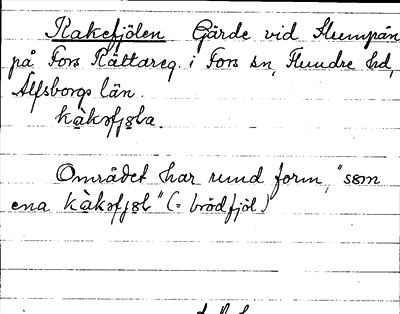 Kakefjölen Gärde vid Slumpån
på Fors Rättareg. i Fors sn, Flundre hd,
Älfsborgs län.
kàkəfjөla.
Området har rund form, "som
ena kàkəfjөl" (= brödfjöl)